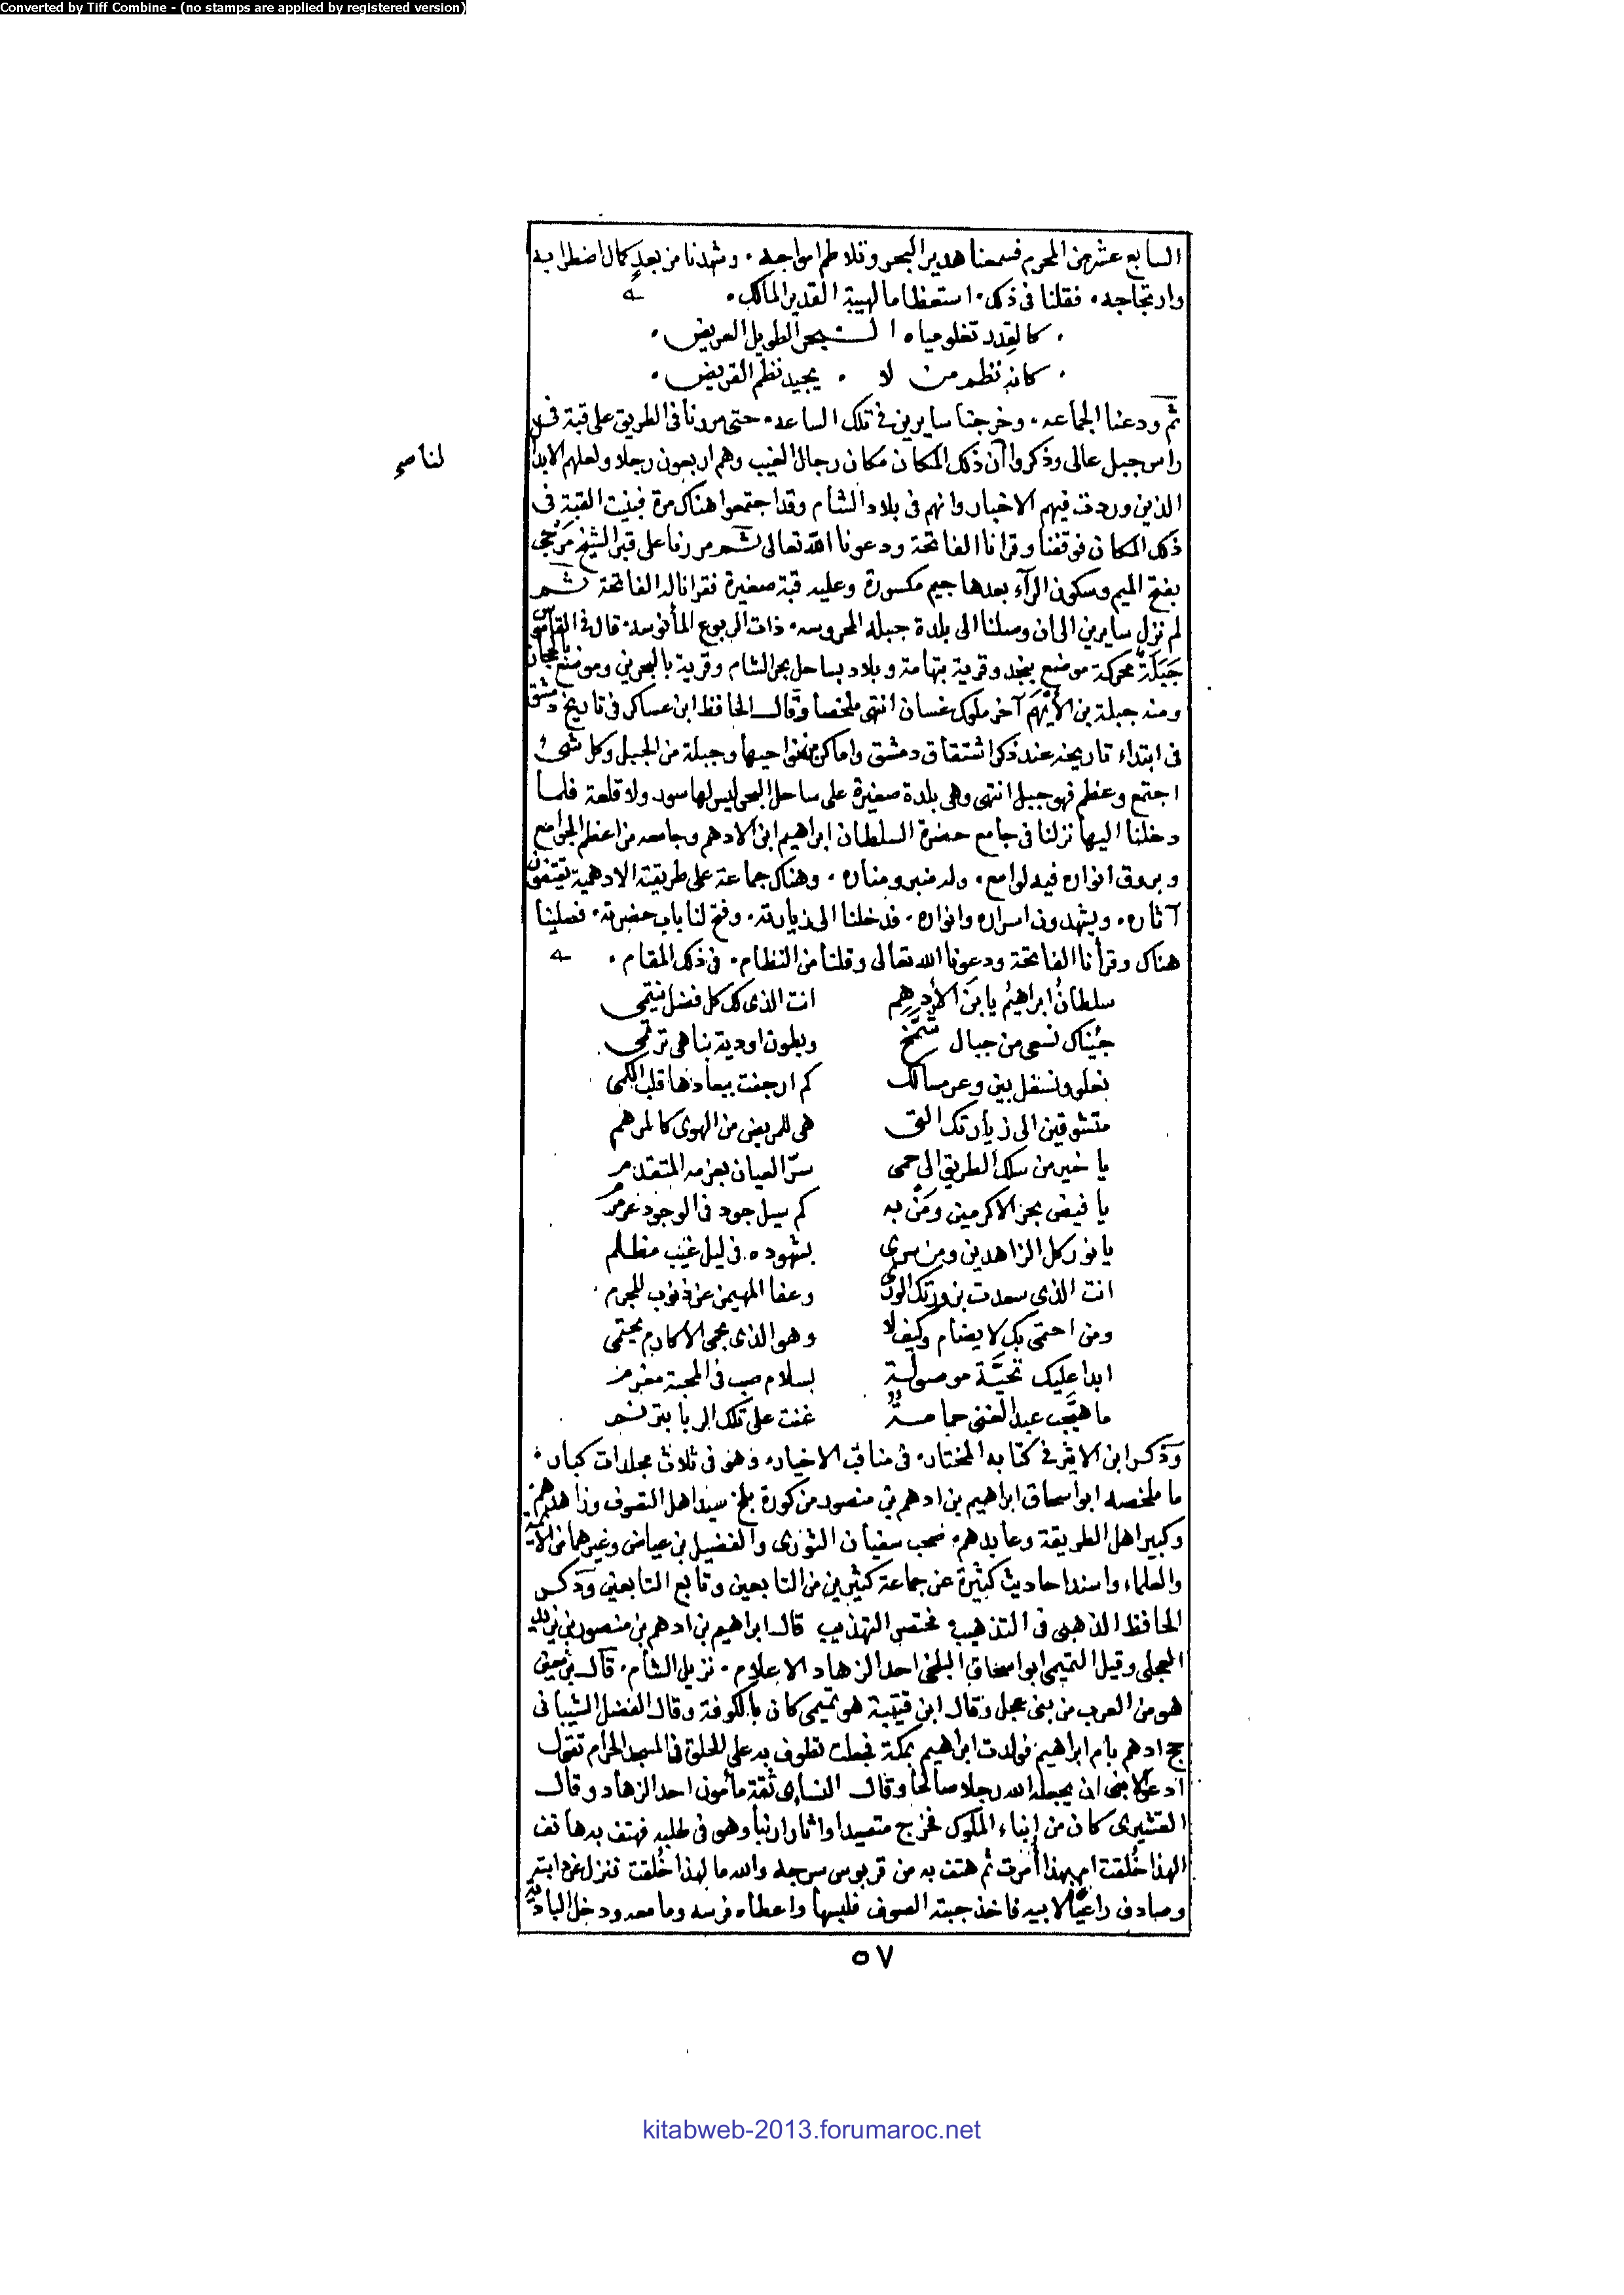 Converted by Tiff Combine - (no stamps are applied by registered version)
السابع عشر من المحرم فسمعنا هدير البحر وتلاطم امواجه، وشهدنا من بعد كمال اضطرابه
وارتجاجه، فقلنا فى ذلك، استعظاما لهيبة القدير المالك،
كالقدر تغلو مياه البحر الطويل العريض،
كانه نظم من لا، يجيد نظم القريض،
ثم ودعنا الجماعه، وخرجنا سايرين فى تلك الساعه، حتى مررنا فى الطريق على قبة فى
راس جبل عالى وذكروا لنا صح أن ذلك المكان مكان رجال الغيب وهم اربعون رجلا ولعلهم الابدا
الذين وردت فيهم الاخبار وانهم فى بلاد الشام وقد اجتمعوا هناك مرة فبنيت القبة فى
ذلك المكان فوقفنا وقرانا الفاتحة ودعونا الله تعالى ثم مررنا على قبر الشيخ مرجى
بفتح الميم وسكون الرآء بعدها جيم مكسورة وعليه قبة صغيرة فقرانا له الفاتحة ثم
لم نزل سايرين الى ان وصلنا الى بلدة جبله المحروسه، ذات الربوع المأنوسه، قال فى القاموس
جَبَلَة محركة موضع بنجد وقرية بتهامة وبلاد بساحل بحر الشام وقرية بالبحرين وموضع بالحجاز
ومنه جبلة بن الأيهم آخر ملوك غسان انتهى ملخصا وقال الحافظ ابن عساكر فى تاريخ دمشق
فى ابتداء تاريخه عند ذكر اشتقاق دمشق واماكن من نواحيها وجبلة من الجبل وكل شئ
اجتمع وعظم فهو جبل انتهى وهى بلدة صغيرة على ساحل البحر ليس لها سور ولا قلعة فلما
دخلنا اليها نزلنا فى جامع حضرة السلطان ابراهيم ابن الادهم وجامعه من اعظم الجوامع
وبروق انواره فيه لوامع، وله منبر ومناره، وهناك جماعة على طريقته الادهمية يقتفون
آثاره، ويشهدون اسراره وانواره، فدخلنا الى زيارته، وفتح لنا باب حضرته، فصلينا
هناك وقرأنا الفاتحة ودعونا الله تعالى وقلنا من النظام، فى ذلك المقام،
سلطانُ ابراهيمُ يا بن الأدهم انت الذى لك كل فضل ينتمى
جئناك نسعى من جبال شمَّخ وبطون اودية بنا هى ترتمى
نعلو ونسفل بين وعر مسالك كم ارجفت ببعادها قلب الكمى
متشوقين الى زيارتك التى هى للمريض من الهوى كالمرهم
يا خير من سلك الطريق الى حمى سرّ العيان بعزمه المتقدم
يا فيض بحر الاكرمين ومَنْ به كم سيل جود فى الوجود عرمرم
يا نور كل الزاهدين ومن سرى بشهوده فى ليل غيب مظلم
انت الذى سعدت بزورتك الورى وعفا المهيمن عن ذنوب المجرم
ومن احتمى بك لا يضام وكيف لا وهو الذى بحمى الاكارم يحتمى
ابدا عليك تحيَّة موصولة بسلام صب فى المحبة مغرم
ما هيَّجت عبد الغنى حمامة غنت على تلك الربا بترنم
وذكر ابن الاثير فى كتابه المختار، فى مناقب الاخيار، وهو فى ثلاث مجلدات كبار،
ما ملخصه ابو اسحاق ابراهيم بن ادهم بن منصور من كورة بلخ سيد اهل التصوف وزاهدهم
وكبير اهل الطريقة وعابدهم، صحب سفيان الثورى والفضيل بن عياض وغيرهما من الائمة
والعلماء واسند احاديث كثيرة عن جماعة كثيرين من التابعين وتابع التابعين وذكر
الحافظ الذهبى فى التذهيب مختصر التهذيب قال ابراهيم بن ادهم بن منصور بن يزيد
العجلى وقيل التميمى ابو اسحاق البلخى احد الزهاد الاعلام، نزيل الشام، قال بن معين
هو من العرب من بنى عجل وقال ابن قتيبة هو تميمى كان بالكوفة وقال الفضل الشيبانى
حج ادهم بام ابراهيم فولدت ابراهيم بمكة فجعلت تطوف به على الحلق فى المسجد الحرام تقول
ادعوا لابنى ان يجعله الله رجلا صالحا وقال النساى ثقة مأمون احد الزهاد وقال
القشيرى كان من ابناء الملوك فخرج متصيدا واثار ارنبا وهو فى طلبه فهتف به هاتف
الهذا خُلقت ام بهذا أمرت ثم هتف به من قربوس سرجه والله ما لهذا خُلقت فنزل عن دابته
وصادف راعيًا لابيه فاخذ جبته الصوف فلبسها واعطاه فرسه وما معه ودخل البادية
٥٧
kitabweb-2013.forumaroc.net